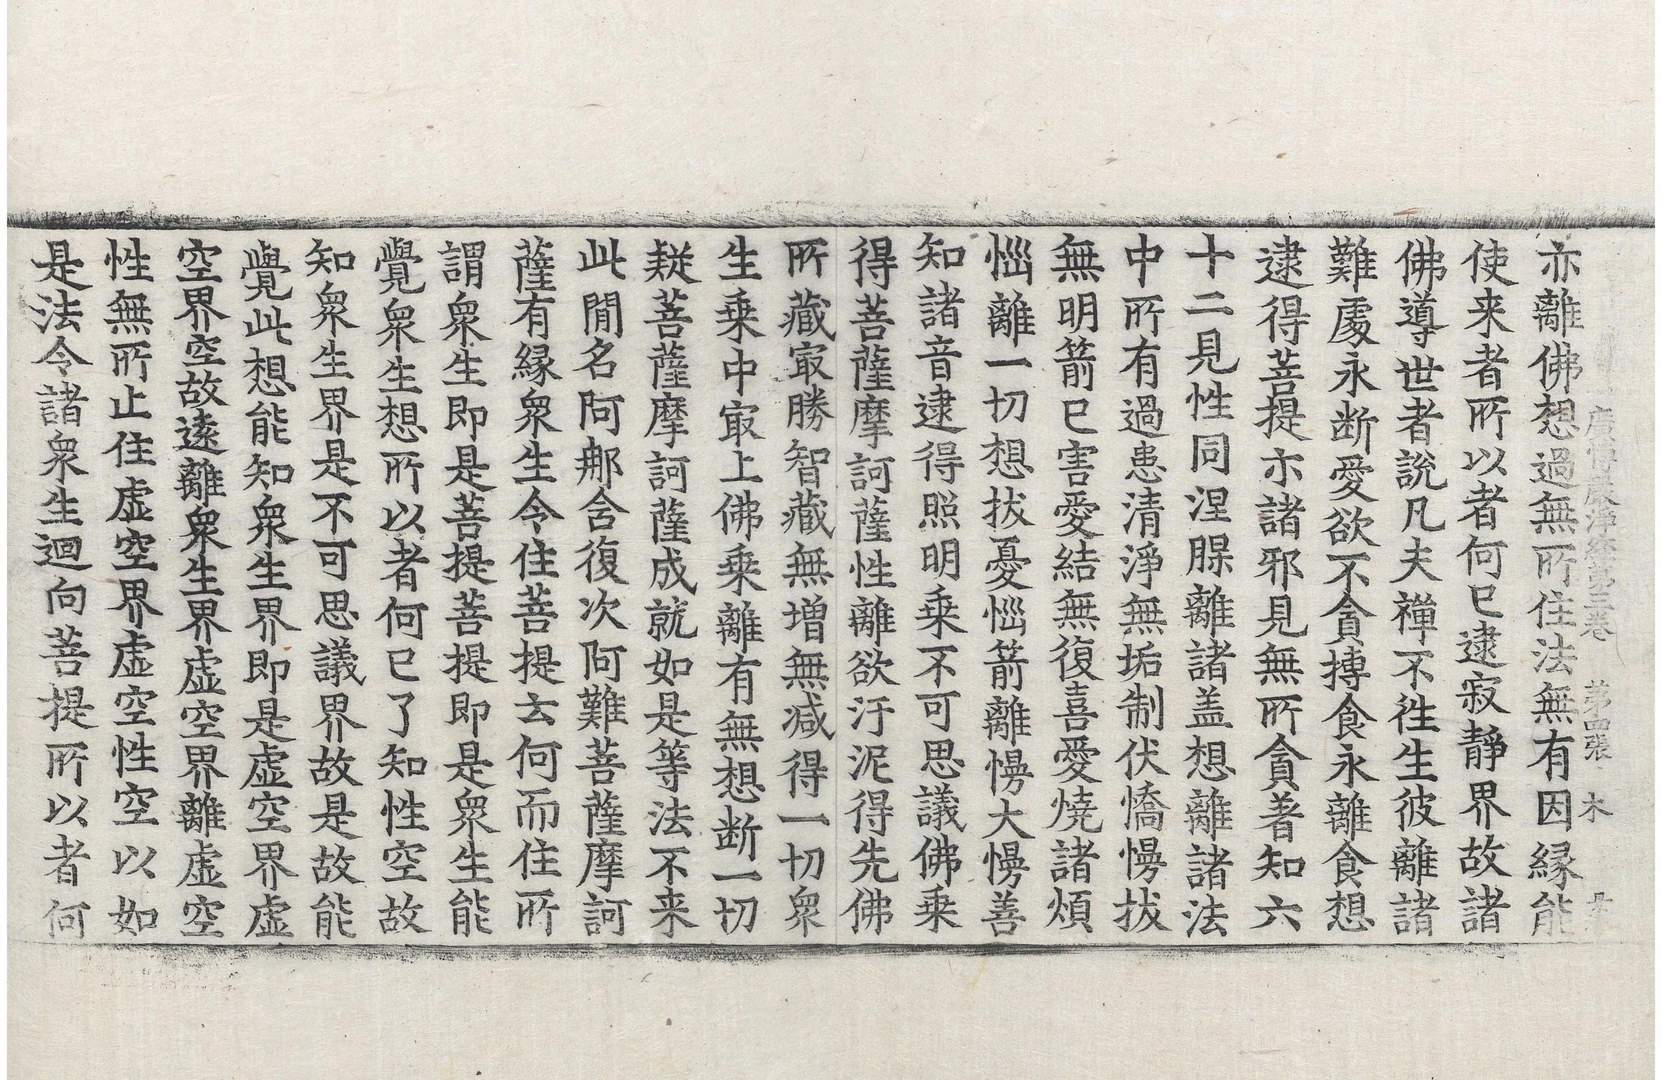 廣博嚴淨經第三卷 第四張 木
亦離佛想過無所住法無有因縁能
使来者所以者何已逮寂靜界故諸
佛導世者說凡夫禪不徃生彼離諸
難處永断愛欲不貪摶食永離食想
逮得菩提亦諸邪見無所貪著知六
十二見性同涅䐧離諸盖想離諸法
中所有過患清淨無垢制伏憍慢拔
無明箭已害愛結無復喜愛燒諸煩
惱離一切想拔憂惱箭離慢大慢善
知諸音逮得照明乗不可思議佛乗
得菩薩摩訶薩性離欲汙泥得先佛
所藏㝡勝智藏無増無减得一切衆
生乗中㝡上佛乗離有無想断一切
疑菩薩摩訶薩成就如是等法不来
此閒名阿那含復次阿難菩薩摩訶
薩有縁衆生令住菩提云何而住所
謂衆生即是菩提菩提即是衆生能
覺衆生想所以者何已了知性空故
知衆生界是不可思議界故是故能
覺此想能知衆生界即是虛空界虛
空界空故逺離衆生界虛空界離虛空
性無所止住虛空界虛空性空以如
是法令諸衆生迴向菩提所以者何